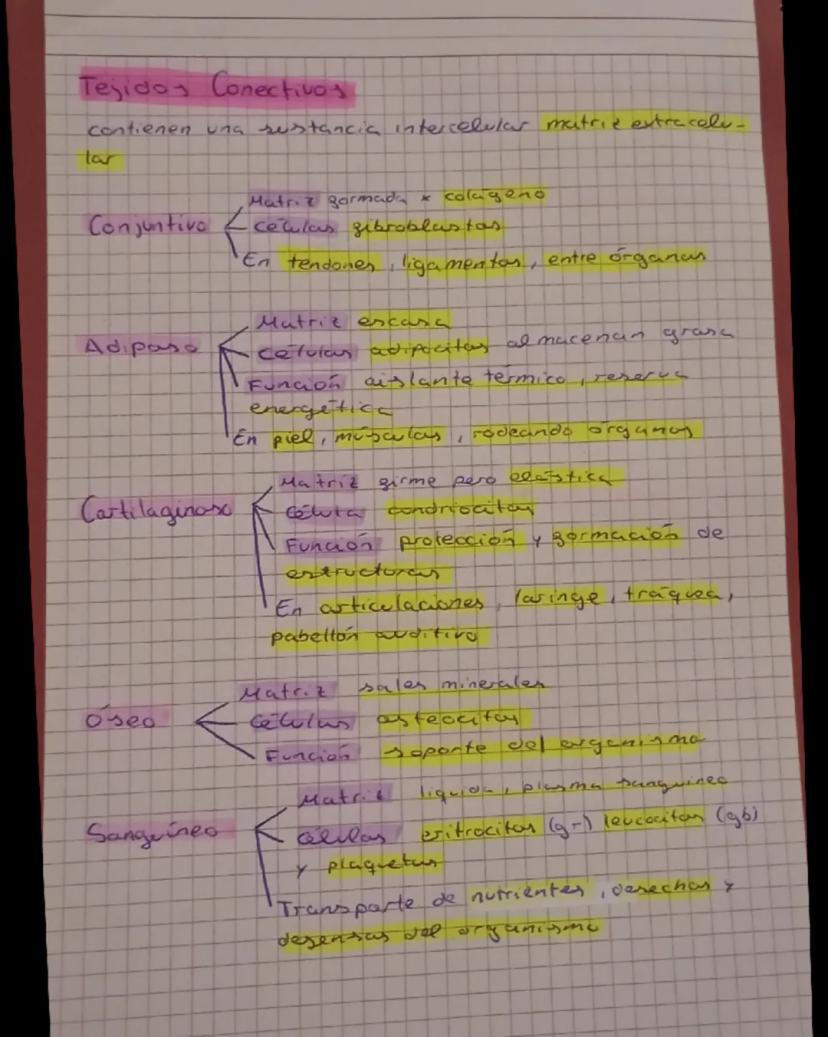 Tejidos Conectivos
contienen una sustancia intercelular matriz extracelu-
lar
Matriz formada x colágeno
Conjuntivo
Células fibroblastos
En tendones, ligamentos, entre órganos
Matriz escasa
Adiposo
Células adipocitos almacenan grasa
Función aislante térmico, reserva
energética
En piel, músculos, rodeando órganos
Matriz firme pero elástica
Cartilaginoso
Célula condriocitos
Función protección y formación de
estructuras
En articulaciones, laringe, tráquea,
pabellón auditivo
Matriz sales minerales
Óseo
Células osteocitos
Función soporte del organismo
Matriz líquida, plasma sanguíneo
Sanguíneo
Células eritrocitos (gr) leucocitos (gb)
y plaquetas
Transporte de nutrientes, desechos y
defensas del organismo